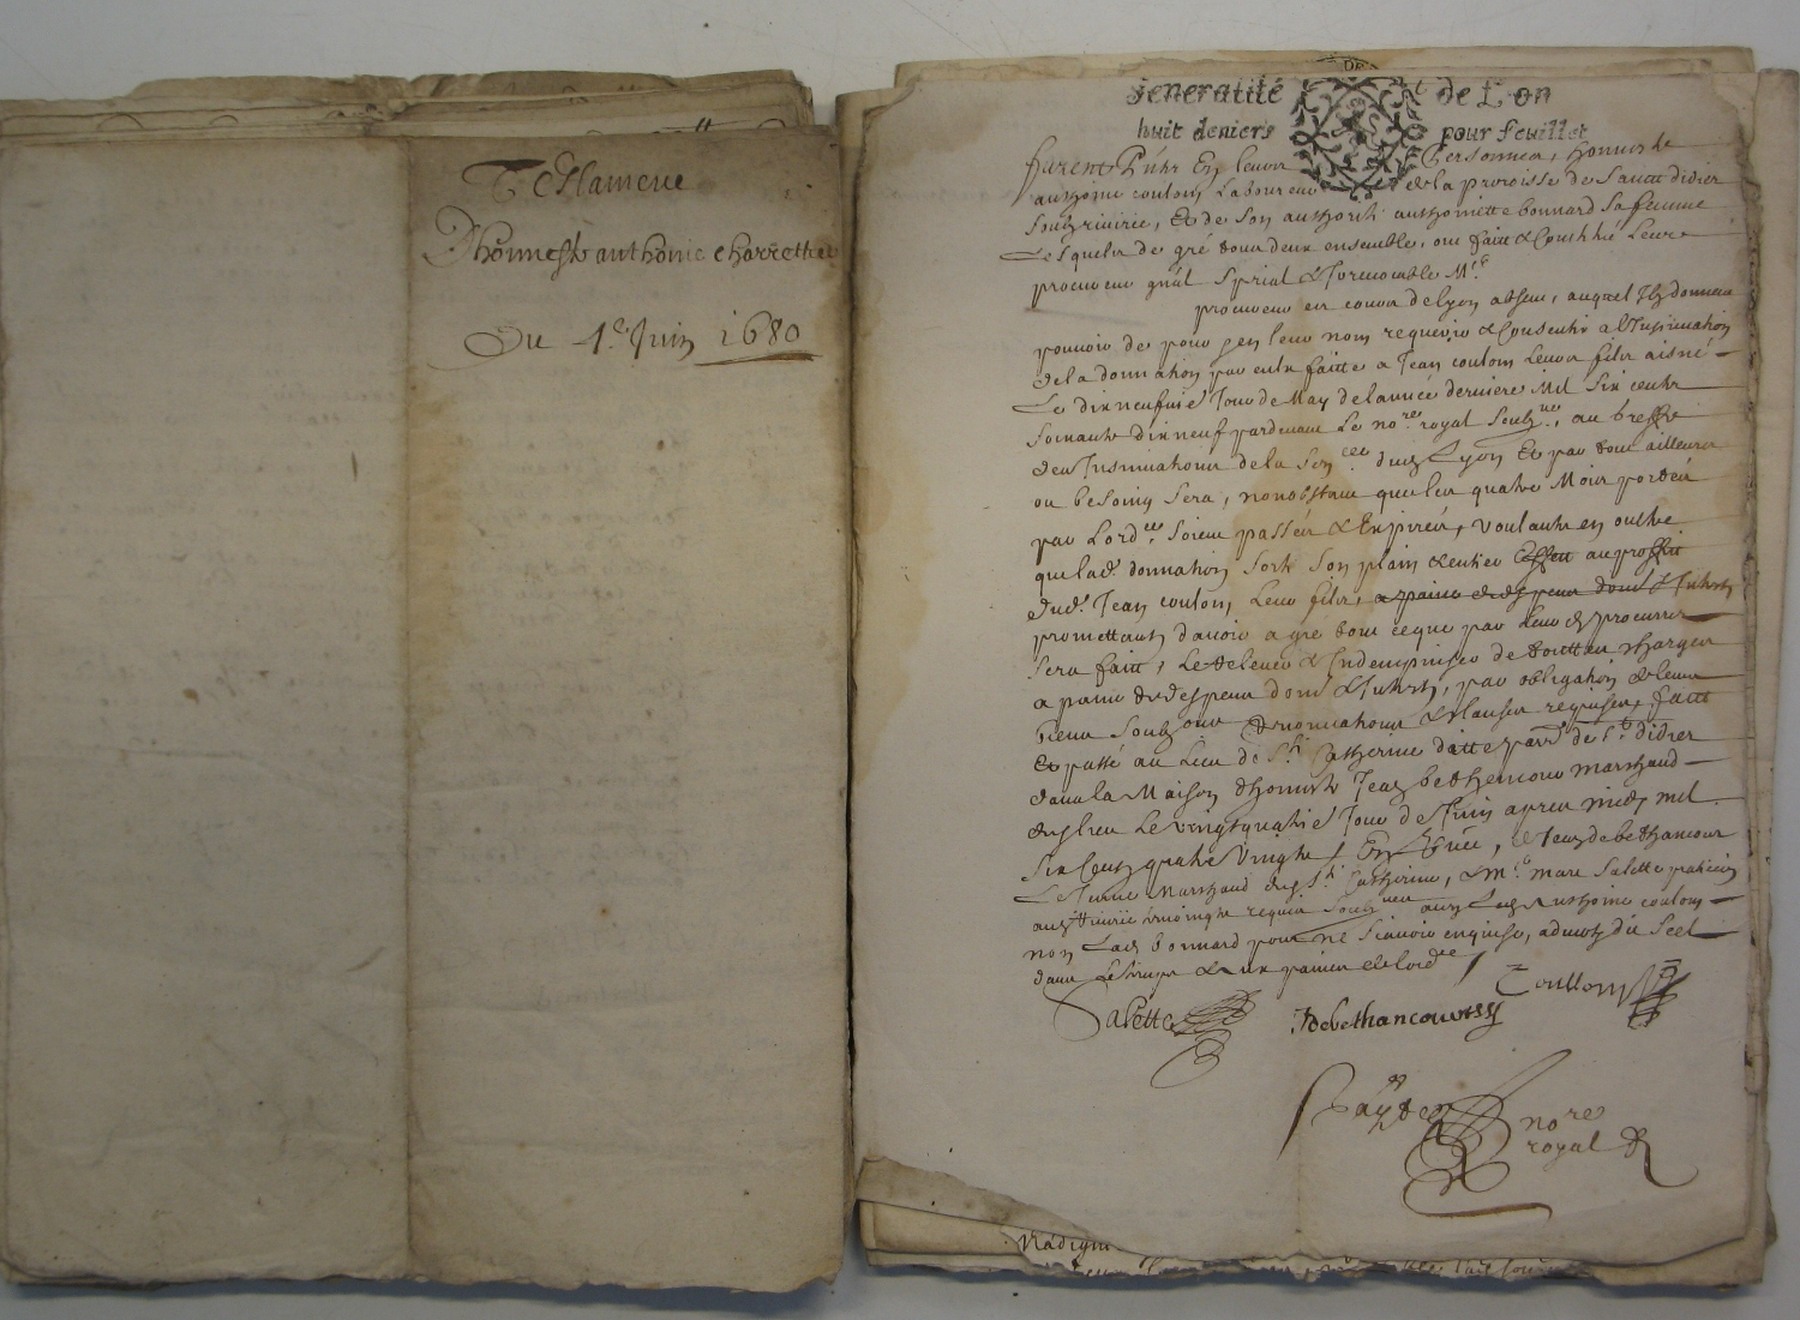 Testament
Dhonneste anthonie charrettier
Du 1er Juin 1680
Generalité de Lion
huit deniers pour feuillet
furent pnts En leurs personnes, honneste
anthoine coulon Laboureur de la parroisse de Sainct didier
soubz riuirie, Et de son authorité anthoinette bonnard sa femme
Lesquels de gré tous deux ensemble, ont faict & Constitué Leur
procureur gnâl spécial & Irreuocable Mre
procureur en cour de lyon absent, auquel Ilz donnent
pouuoir de pour & en leur nom requerir & Consentir a l'Insinuation
de la donnation par eulx faitte a Jean coulon Leur filz aisné
Le dixneufuie Jour de May de l'année derniere Mil Six centz
soixante dixneuf pardeuant Le nore royal soubzne, au greffe
des Insinuations de la Sencee dud Lyon Et par tout ailleurs
ou besoing sera, nonobstant que les quatre Mois portés
par Lordce soient passés & Expirés, voulantz en oultre
que lad. donnation sorte son plain & entier Effett au proffit
dud. Jean coulon, Leur filz, a paine de despens dom & Intrestz
promettantz d'auoir a gré tout ce que par Leurd procureur
sera faict, Le releuer & Indempniser de touttes charges
a paine de despens dom & Intrestz, par obligation de leurs
biens soubz renonciations & clauses requises, faict
Et passé au Lieu de Ste Catherine ditte parr de St didier
dans la Maison d'honneste Jean bethencour marchand
dud lieu Le vingtquatrie Jour de Juin apres midy mil
Six Centz quatre vingtz, En pnce, de Jean debethancour
Le Jeune Marchand dud Ste Catherine, & Mre marc Salette praticien
aud riuirie tesmoingtz requis soubznes auec Led Anthoine coulom
non Lad bonnard pour ne scauoir enquise, aduertz du Scel
dans Le temps & aux paines de lordce
Salette
J debethancourt
Coullom
nore
royal